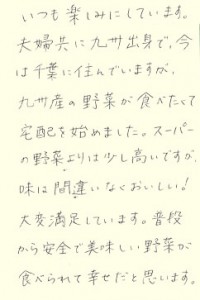 いつも楽しみにしています。
夫婦共に九州出身で、今
は千葉に住んでいますが、
九州産の野菜が食べたくて
宅配を始めました。スーパー
の野菜よりは少し高いですが、
味は間違いなくおいしい!
大変満足しています。普段
から安全で美味しい野菜が
食べられて幸せだと思います。